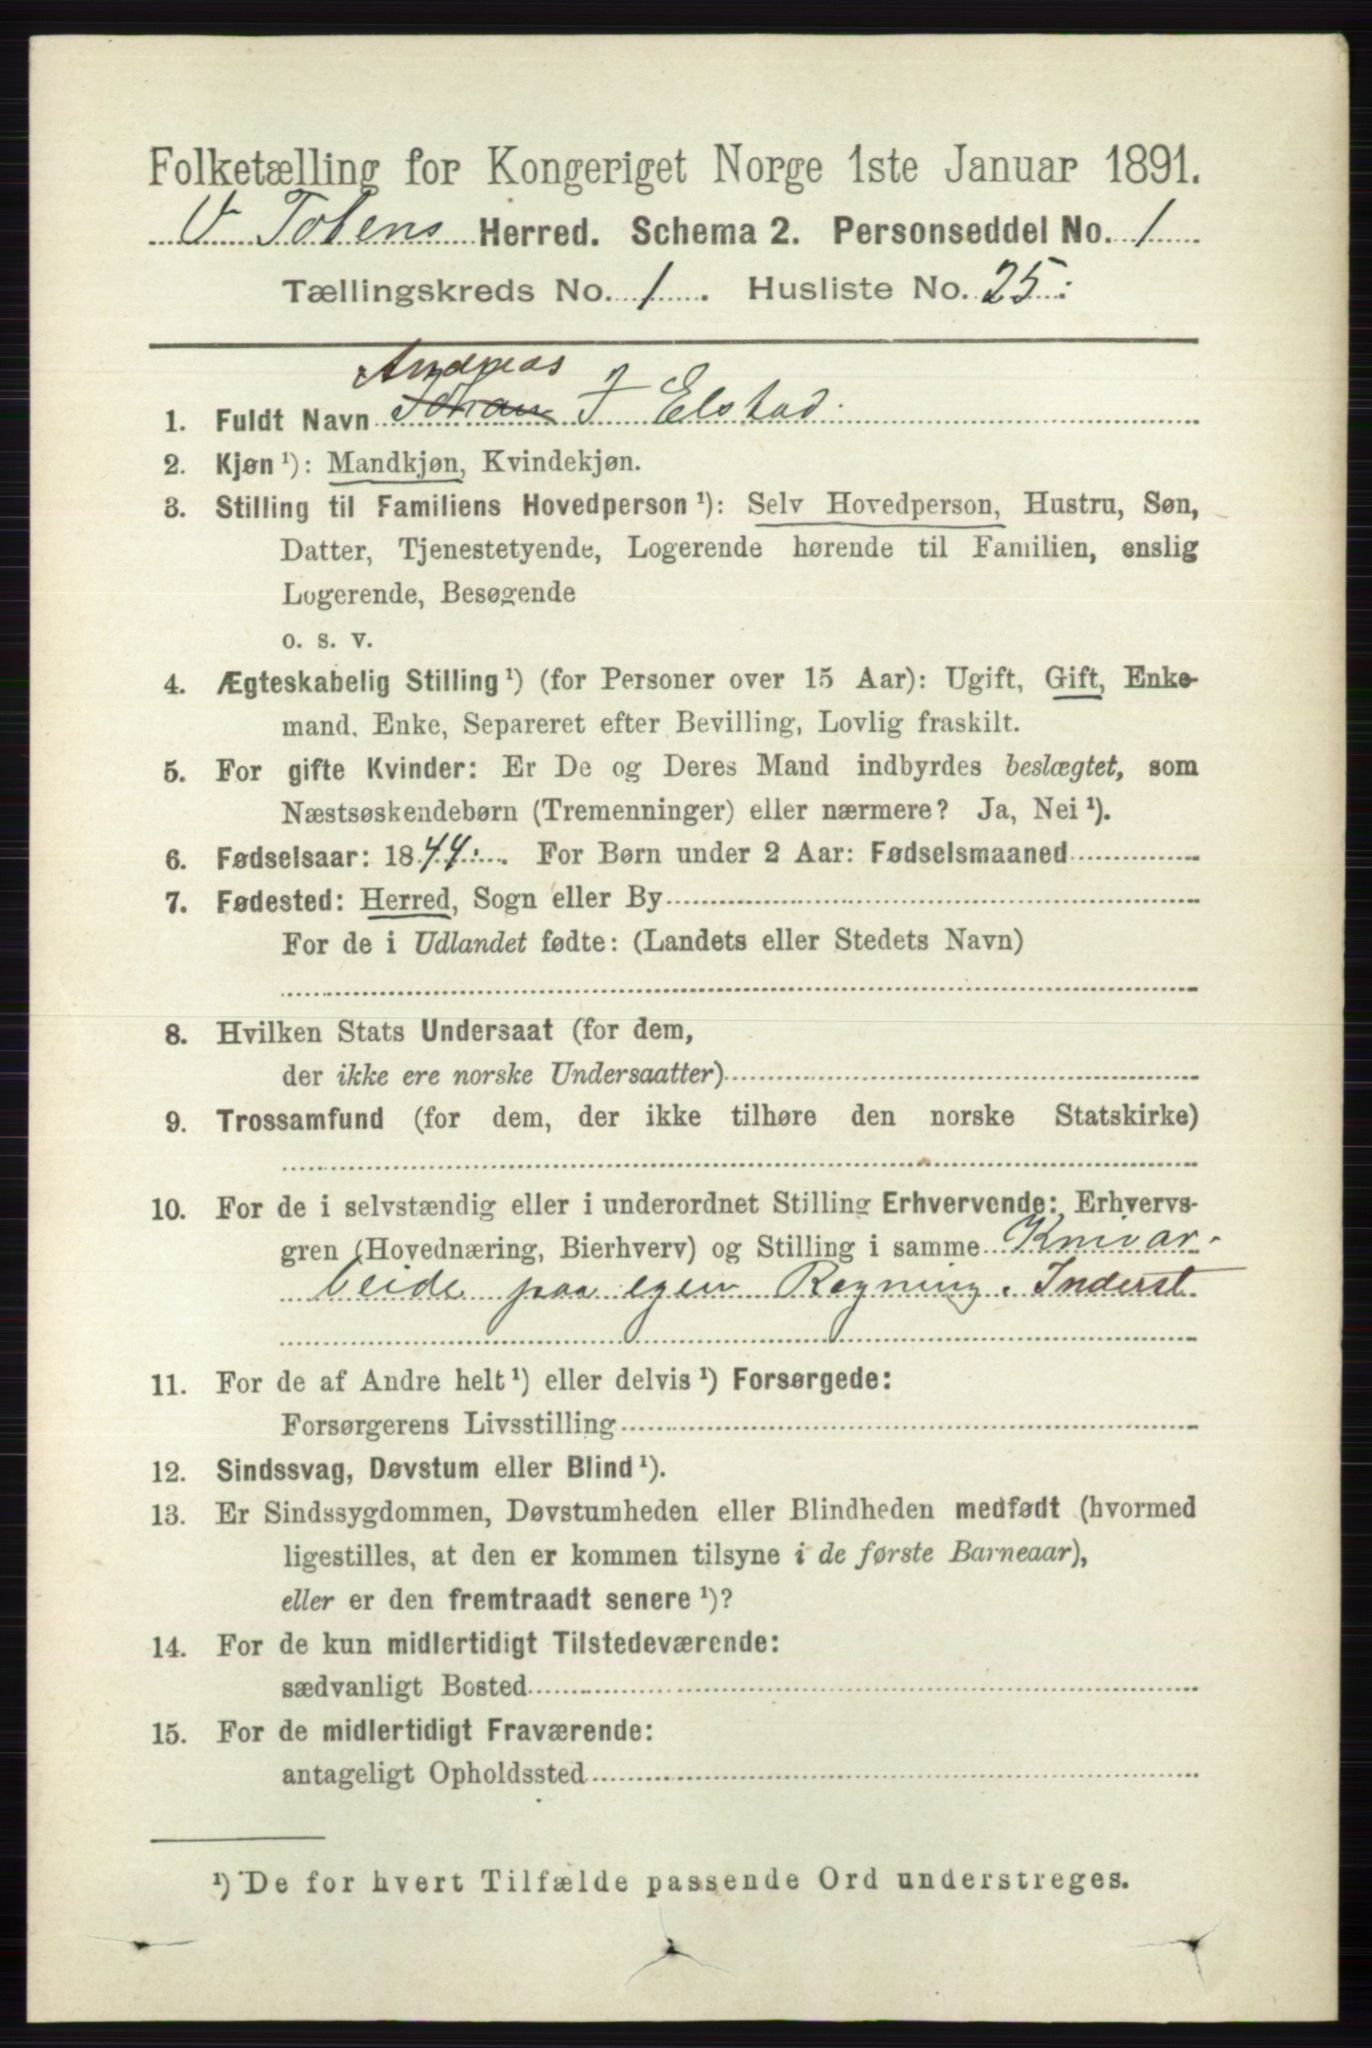 Folketælling for Kongeriget Norge 1ste Januar 1891.
V Totens Herred. Schema 2. Personseddel No. 1
Tællingskreds No. 1. Husliste No. 25.
Andreas
1. Fuldt Navn Johan J Elstad.
2. Kjøn ¹): Mandkjøn, Kvindekjøn.
3. Stilling til Familiens Hovedperson ¹): Selv Hovedperson, Hustru, Søn,
Datter, Tjenestetyende, Logerende hørende til Familien, enslig
Logerende, Besøgende
o. s. v.
4. Ægteskabelig Stilling ¹) (for Personer over 15 Aar): Ugift, Gift, Enke-
mand. Enke, Separeret efter Bevilling, Lovlig fraskilt.
5. For gifte Kvinder: Er De og Deres Mand indbyrdes beslægtet, som
Næstsøskendebørn (Tremenninger) eller nærmere? Ja, Nei ¹).
6. Fødselsaar: 1844. For Børn under 2 Aar: Fødselsmaaned
7. Fødested: Herred, Sogn eller By
For de i Udlandet fødte: (Landets eller Stedets Navn)
8. Hvilken Stats Undersaat (for dem,
der ikke ere norske Undersaatter)
9. Trossamfund (for dem, der ikke tilhøre den norske Statskirke)
10. For de i selvstændig eller i underordnet Stilling Erhvervende: Erhvervs-
gren (Hovednæring, Bierhverv) og Stilling i samme Knivar-
beide paa egen Regning. Inderst
11. For de af Andre helt ¹) eller delvis ¹) Forsørgede:
Forsørgerens Livsstilling
12. Sindssvag, Døvstum eller Blind ¹).
13. Er Sindssygdommen, Døvstumheden eller Blindheden medfødt (hvormed
ligestilles, at den er kommen tilsyne i de første Barneaar),
eller er den fremtraadt senere ¹)?
14. For de kun midlertidigt Tilstedeværende:
sædvanligt Bosted
15. For de midlertidigt Fraværende:
antageligt Opholdssted
¹) De for hvert Tilfælde passende Ord understreges.